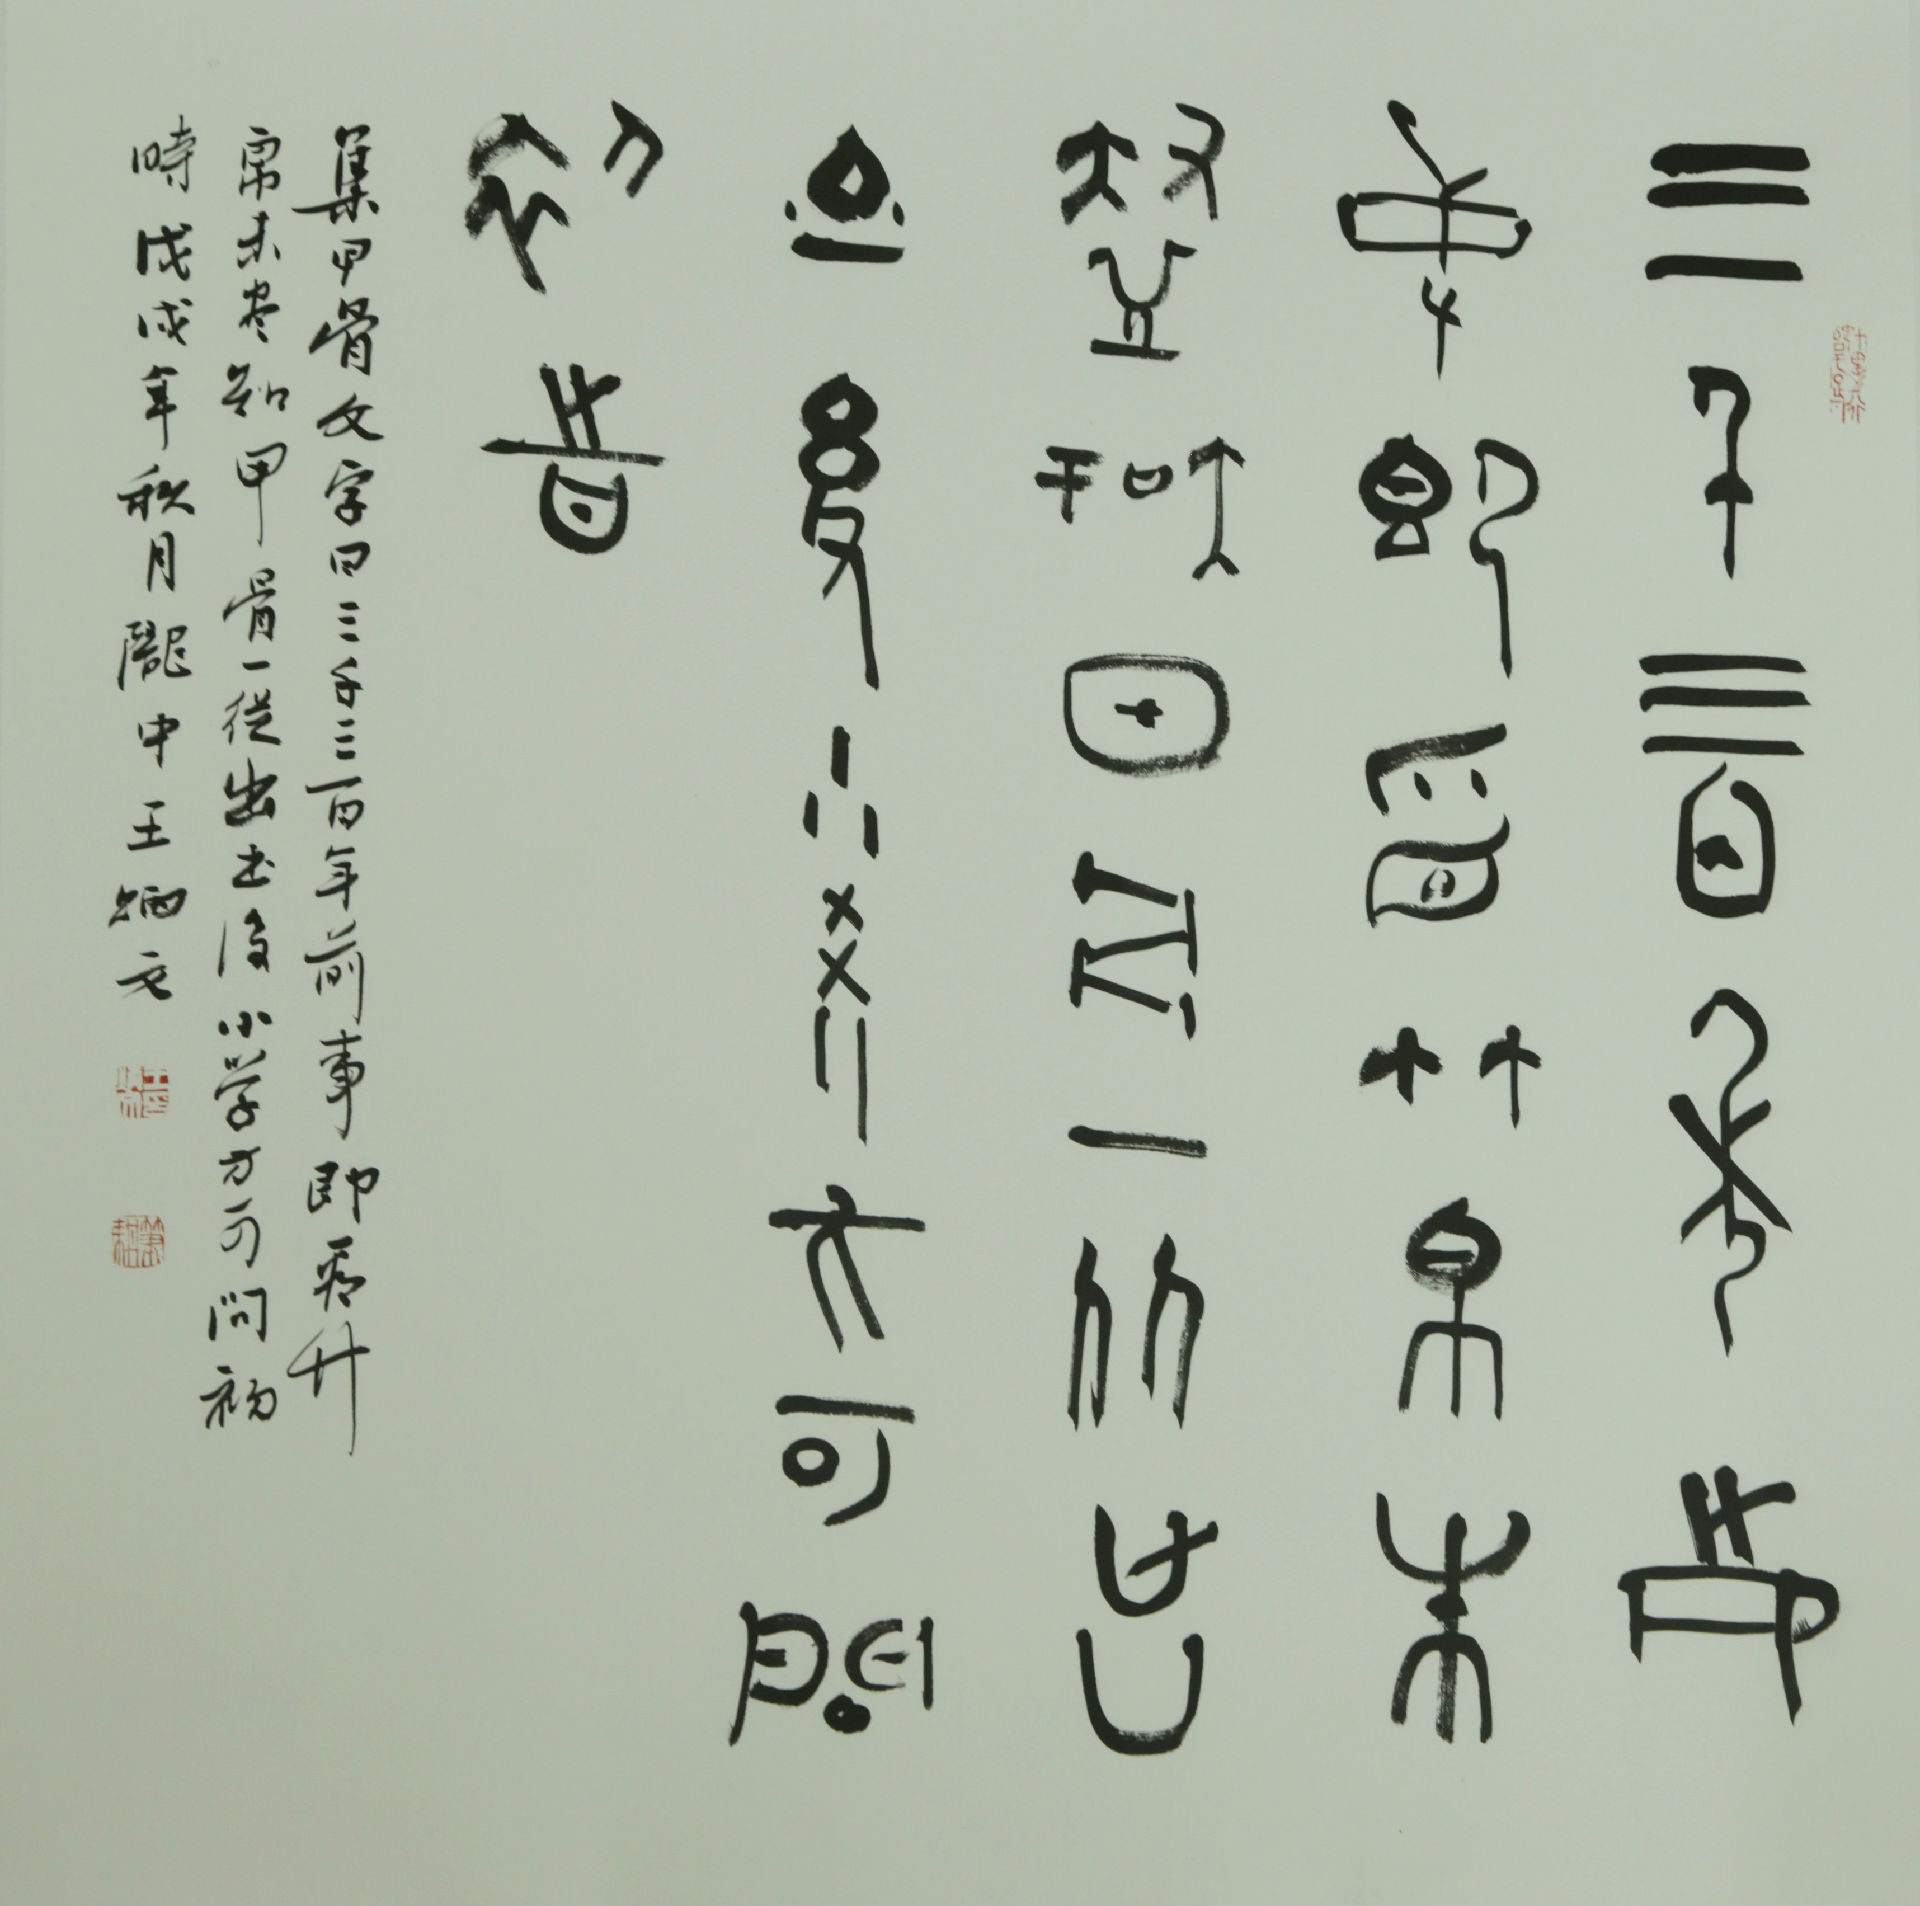 三千三百年前
事即看竹帛未
尽知甲骨一從出
土後小学方可問
初時
集甲骨文字曰三千三百年前事即看竹
帛未尽知甲骨一從出土後小学方可問初
時戊戌年秋月隴中王